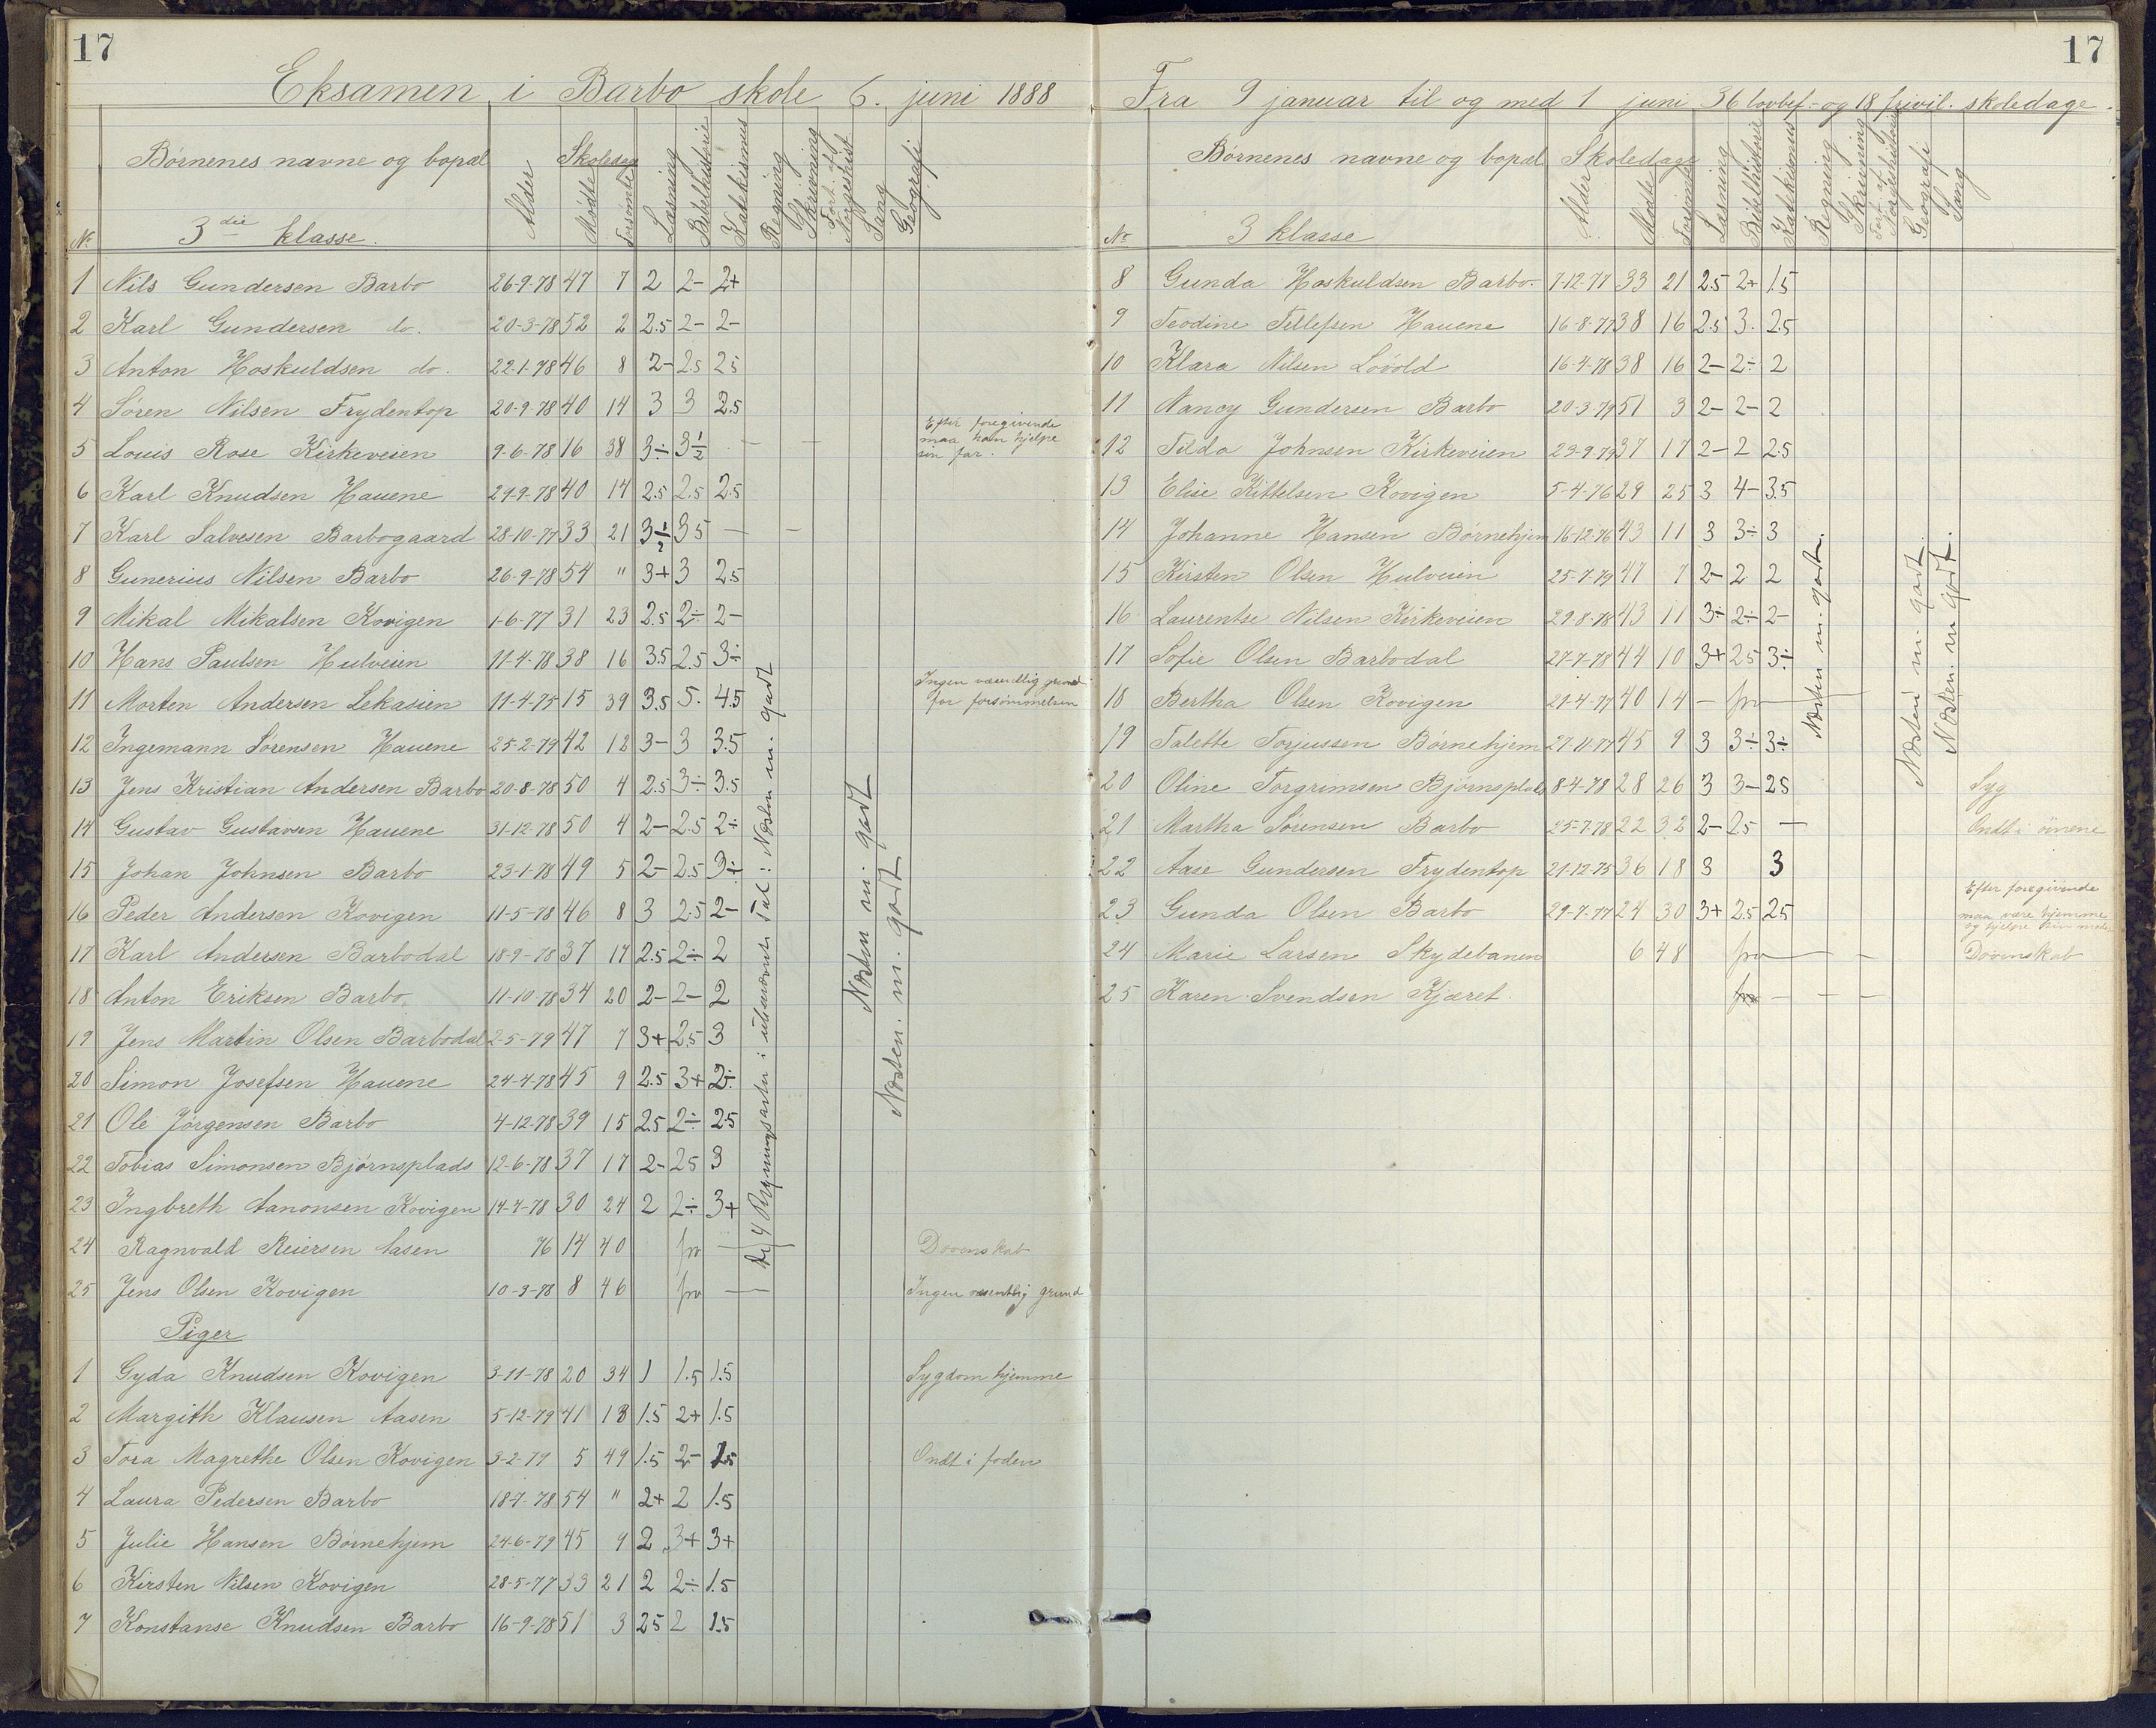 17
Eksamen i Barbo skole 6. juni 1888
Børnenes navne og bopæl Alder Skoledage Mødte Forsømte Læsning Bibelhistorie Katekismus Regning Skrivning Sang Geografi
Nr 3die klasse.
1 Nils Gundersen Barbo 26-9-78 47 7 2 2- 2+
2 Karl Gundersen do. 20-3-78 52 2 2.5 2- 2-
3 Anton Hoskuldsen do. 22-1-78 46 8 2- 2.5 25
4 Søren Nilsen Frydentop 20-9-78 40 14 3 3 2.5
5 Louis Rose Kirkeveien 9-6-78 16 38 3÷ 3½ — — Efter foregivende maa han hjelpe sin far.
6 Karl Knudsen Hauene 29-9-78 40 14 2.5 2.5 2.5
7 Karl Salvesen Barbogaard 28-10-77 33 21 3½ 35 — —
8 Gunerius Nilsen Barbo 26-9-78 54 " 3+ 3 2.5
9 Mikal Mikalsen Kovigen 1-6-77 31 23 2.5 2÷ 2-
10 Hans Paulsen Hulveien 11-4-78 38 16 3.5 2.5 3÷
11 Morten Andersen Lekasien 11-4-75 15 39 3.5 5. 4.5 Ingen væsentlig grund for forsømmelsen
12 Ingemann Sørensen Hauene 25-2-79 42 12 3- 3 3.5
13 Jens Kristian Andersen Barbo 20-8-78 50 4 2.5 3÷ 3.5
14 Gustav Gustavsen Hauene 31-12-78 50 4 2- 2.5 2÷
15 Johan Johnsen Barbo 23-1-78 49 5 2- 2.5 3÷
16 Peder Andersen Kovigen 11-5-78 46 8 3 2.5 2-
17 Karl Andersen Barbodal 18-9-78 37 17 2.5 2÷ 2
18 Anton Eriksen Barbo 11-10-78 34 20 2- 2- 2
19 Jens Martin Olsen Barbodal 2-5-79 47 7 3+ 2.5 3
20 Simon Josefsen Hauene 24-4-78 45 9 2.5 3+ 2÷
21 Ole Jørgensen Barbo 4-12-78 39 15 2.5 2÷ 2.5
22 Tobias Simonsen Bjørnsplads 12-6-78 37 17 2- 25 3
23 Ingbreth Aanonsen Kovigen 14-4-78 30 24 2 2÷ 3+
24 Ragnvald Reiersen Aasen 76 14 40 fra — Dovenskab
25 Jens Olsen Kovigen 10-3-78 8 46 fra — Ingen væsentlig grund
De 4 Regningsarter i ubenævnte Tal: Næsten m. godt
Næsten m. godt
Næsten m. godt
Piger
1 Gyda Knudsen Kovigen 3-11-78 20 34 1 1.5 1.5 Sygdom hjemme
2 Margith Klausen Aasen 5-12-79 41 13 1.5 2+ 1.5
3 Tora Magrethe Olsen Kovigen 3-2-79 5 49 1.5 2- 1.5 Ondt i foden
4 Laura Pedersen Barbo 18-7-78 54 " 2+ 2 1.5
5 Julie Hansen Børnehjem 24-6-79 45 9 2 3+ 3+
6 Kirsten Nilsen Kovigen 28-5-77 33 21 2 2÷ 1.5
7 Konstanse Knudsen Barbo 16-9-78 51 3 25 2 1.5
17
Fra 9 januar til og med 1 juni 36 lovbef.- og 18 frivil. skoledage.
Børnenes navne og bopæl Alder Skoledage Mødte Forsømte Læsning Bibelhistorie Katekismus Regning Skrivning Geografi Sang
Nr 3 klasse
8 Gunda Hoskuldsen Barbo. 7-12-77 33 21 2.5 2+ 1.5
9 Teodine Tellefsen Hauene 16-8-77 38 16 2.5 3. 2.5
10 Klara Nilsen Lovold 16-4-78 38 16 2- 2÷ 2
11 Nancy Gundersen Barbo 20-3-79 51 3 2- 2- 2
12 Tilda Johnsen Kirkeveien 23-9-79 37 17 2- 2 2.5
13 Elise Kittelsen Kovigen 5-4-76 29 25 3 4- 3.5
14 Johanne Hansen Børnehjem 16-12-76 43 11 3 3÷ 3
15 Kirsten Olsen Hulveien 25-7-79 47 7 2- 2 2
16 Laurentse Nilsen Kirkeveien 29-8-78 43 11 3÷ 2÷ 2-
17 Sofie Olsen Barbodal 27-7-78 44 10 3+ 25 3÷
18 Bertha Olsen Kovigen 21-4-77 40 14 — fra —
19 Talette Torjussen Børnehjem 27-11-77 45 9 3 3÷ 3÷
20 Oline Torgrimsen Bjørnsplads 8-4-78 28 26 3 3- 25 Syg
21 Martha Sørensen Barbo 25-7-78 22 32 2- 2.5 — Ondt i öinene
22 Aase Gundersen Frydentop 21-12-75 36 18 3 3
23 Gunda Olsen Barbo 29-7-77 24 30 3+ 2.5 25 Efter foregivende maa være hjemme og hjelpe sin moder
24 Marie Larsen Skydebanen 6 48 fra — — Dovenskab
25 Karen Svendsen Kjæret. fra — — —
Næsten m. godt.
Næsten m. godt.
Næsten m. godt.